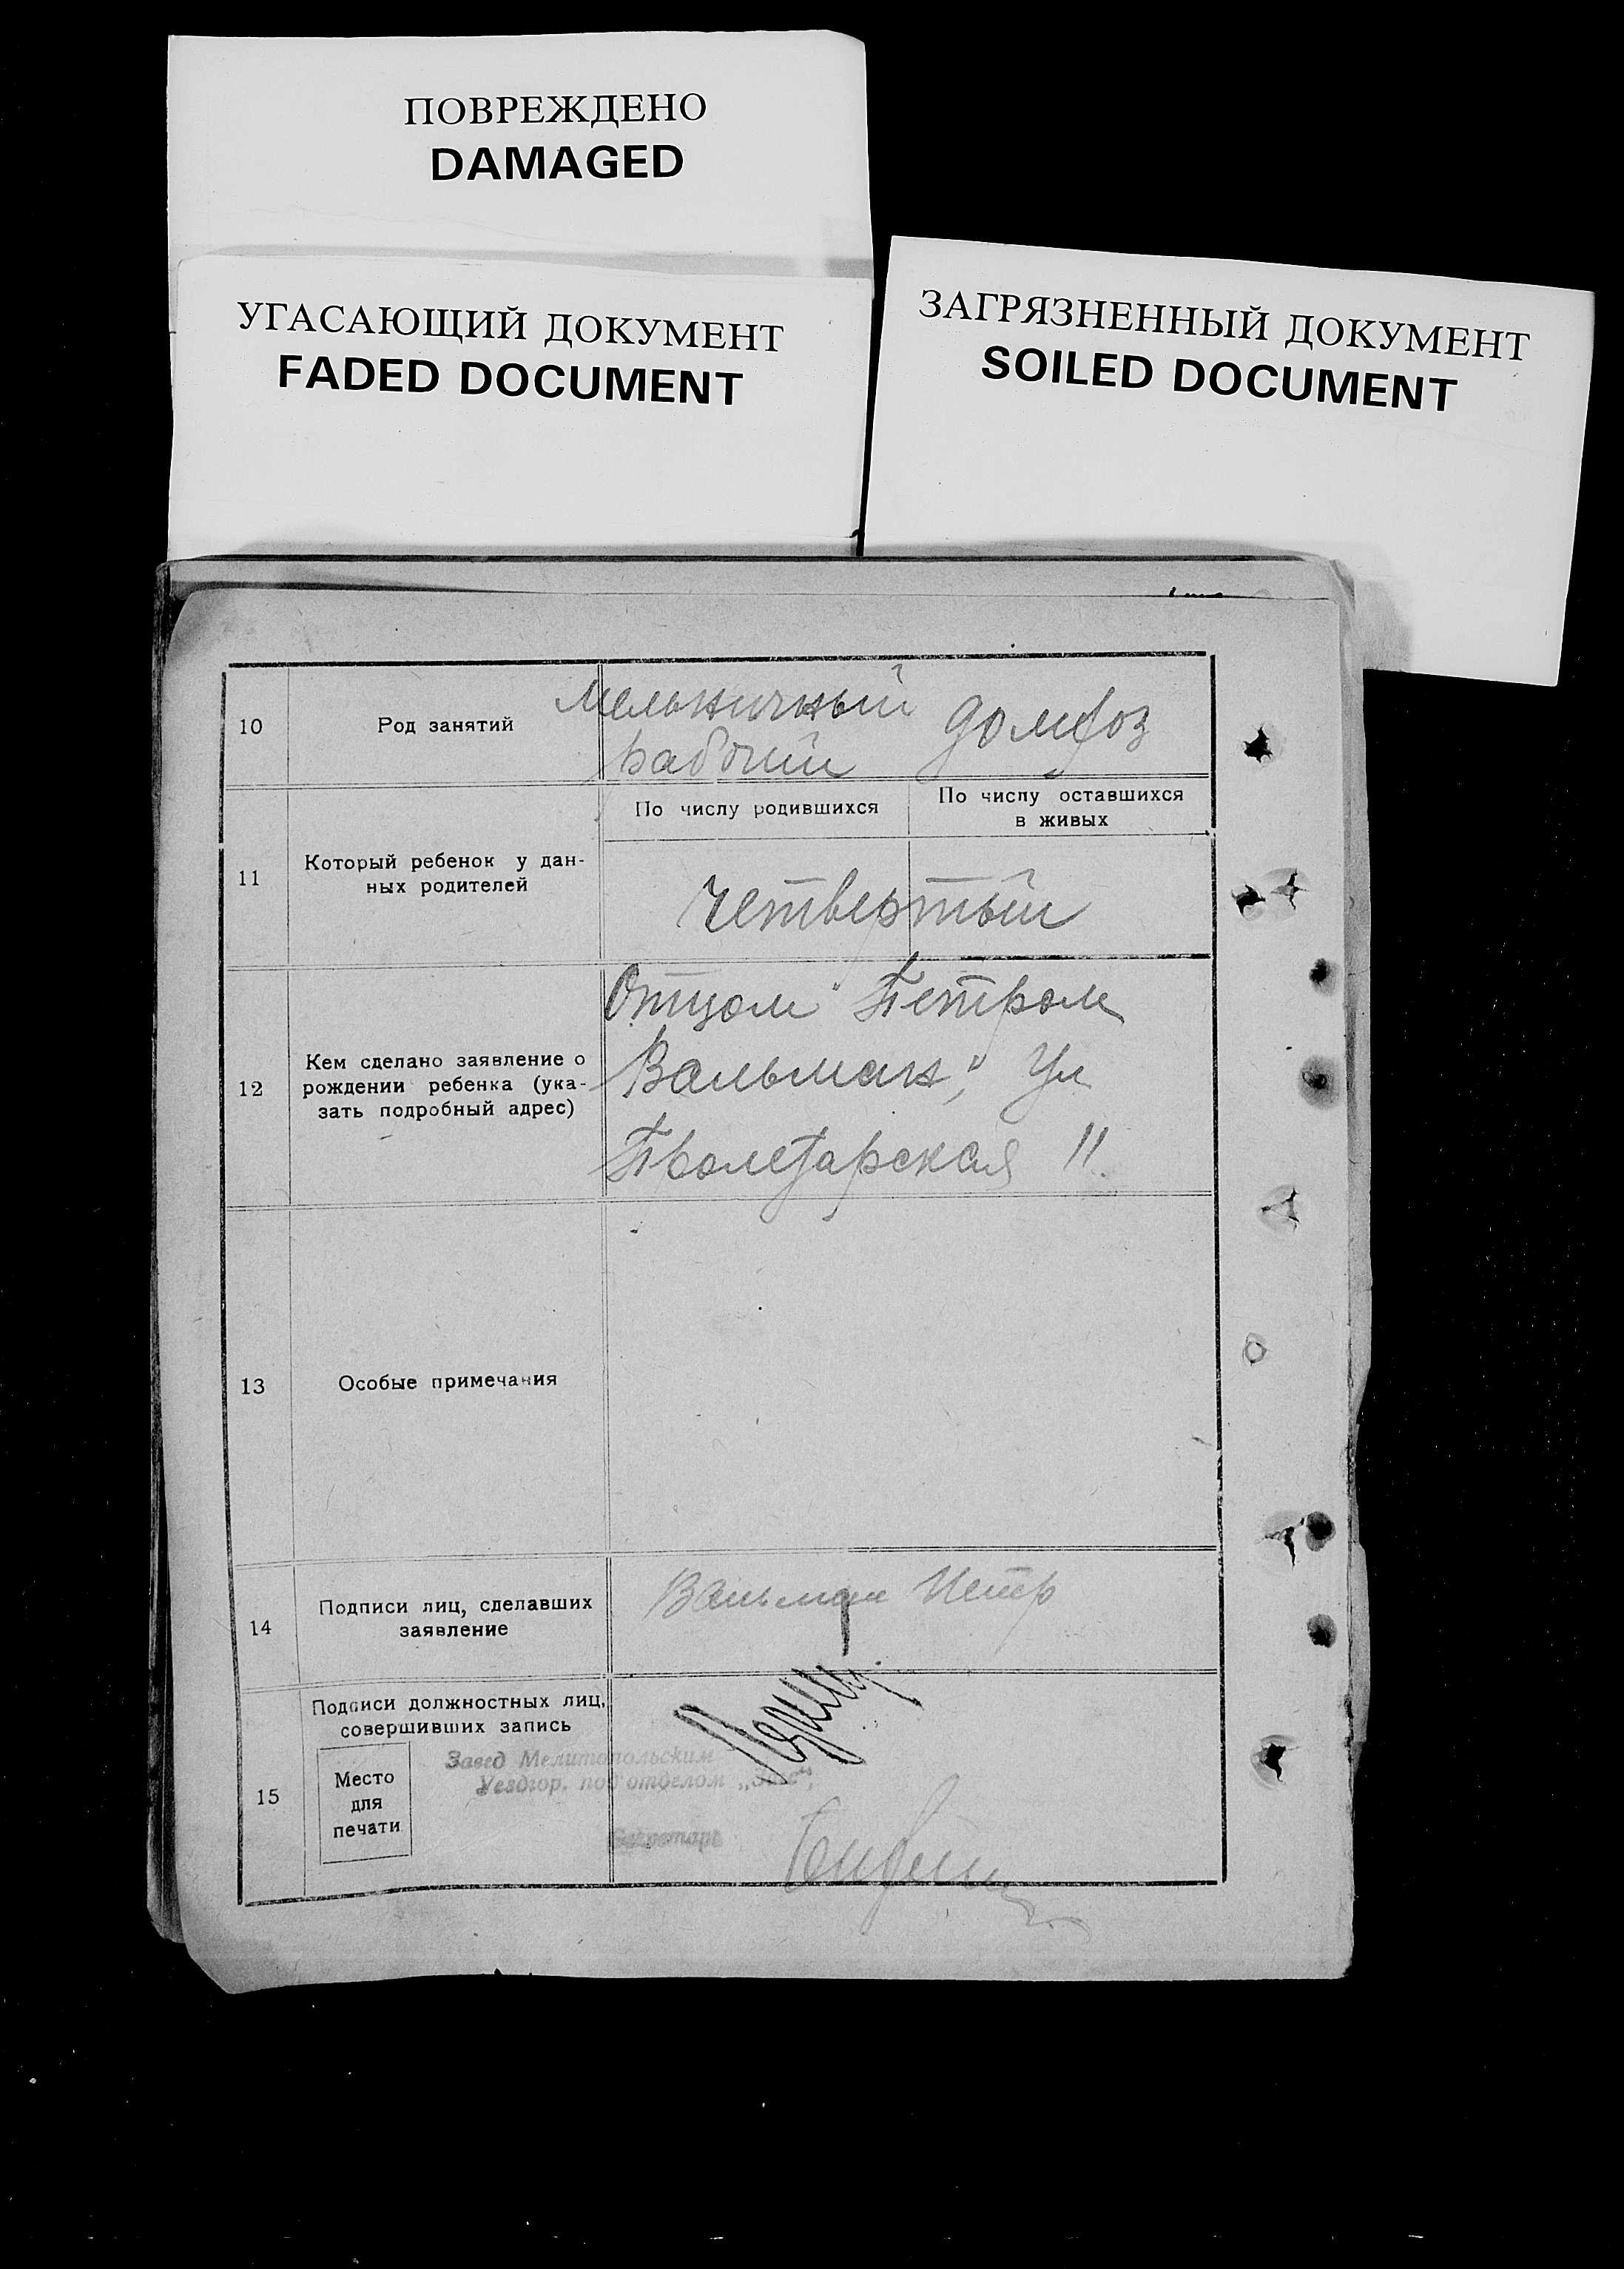 ПОВРЕЖДЕНО
DAMAGED
УГАСАЮЩИЙ ДОКУМЕНТ
FADED DOCUMENT
ЗАГРЯЗНЕННЫЙ ДОКУМЕНТ
SOILED DOCUMENT
10
Род занятий
Мельничный
рабочий
домхоз
11
Который ребенок у дан-
ных родителей
По числу родившихся
По числу оставшихся
в живых
Четвертый
12
Кем сделано заявление о
рождении ребенка (ука-
зать подробный адрес)
Отцом "Петром
Вальман", Ул
Пролетарская 11.
13
Особые примечания
14
Подписи лиц, сделавших
заявление
Вальман Петр
15
Подписи должностных лиц,
совершивших запись
Место
для
печати
Завед Мелитопольским
Уездгор. под'отделом „Загс“,
Секретарь